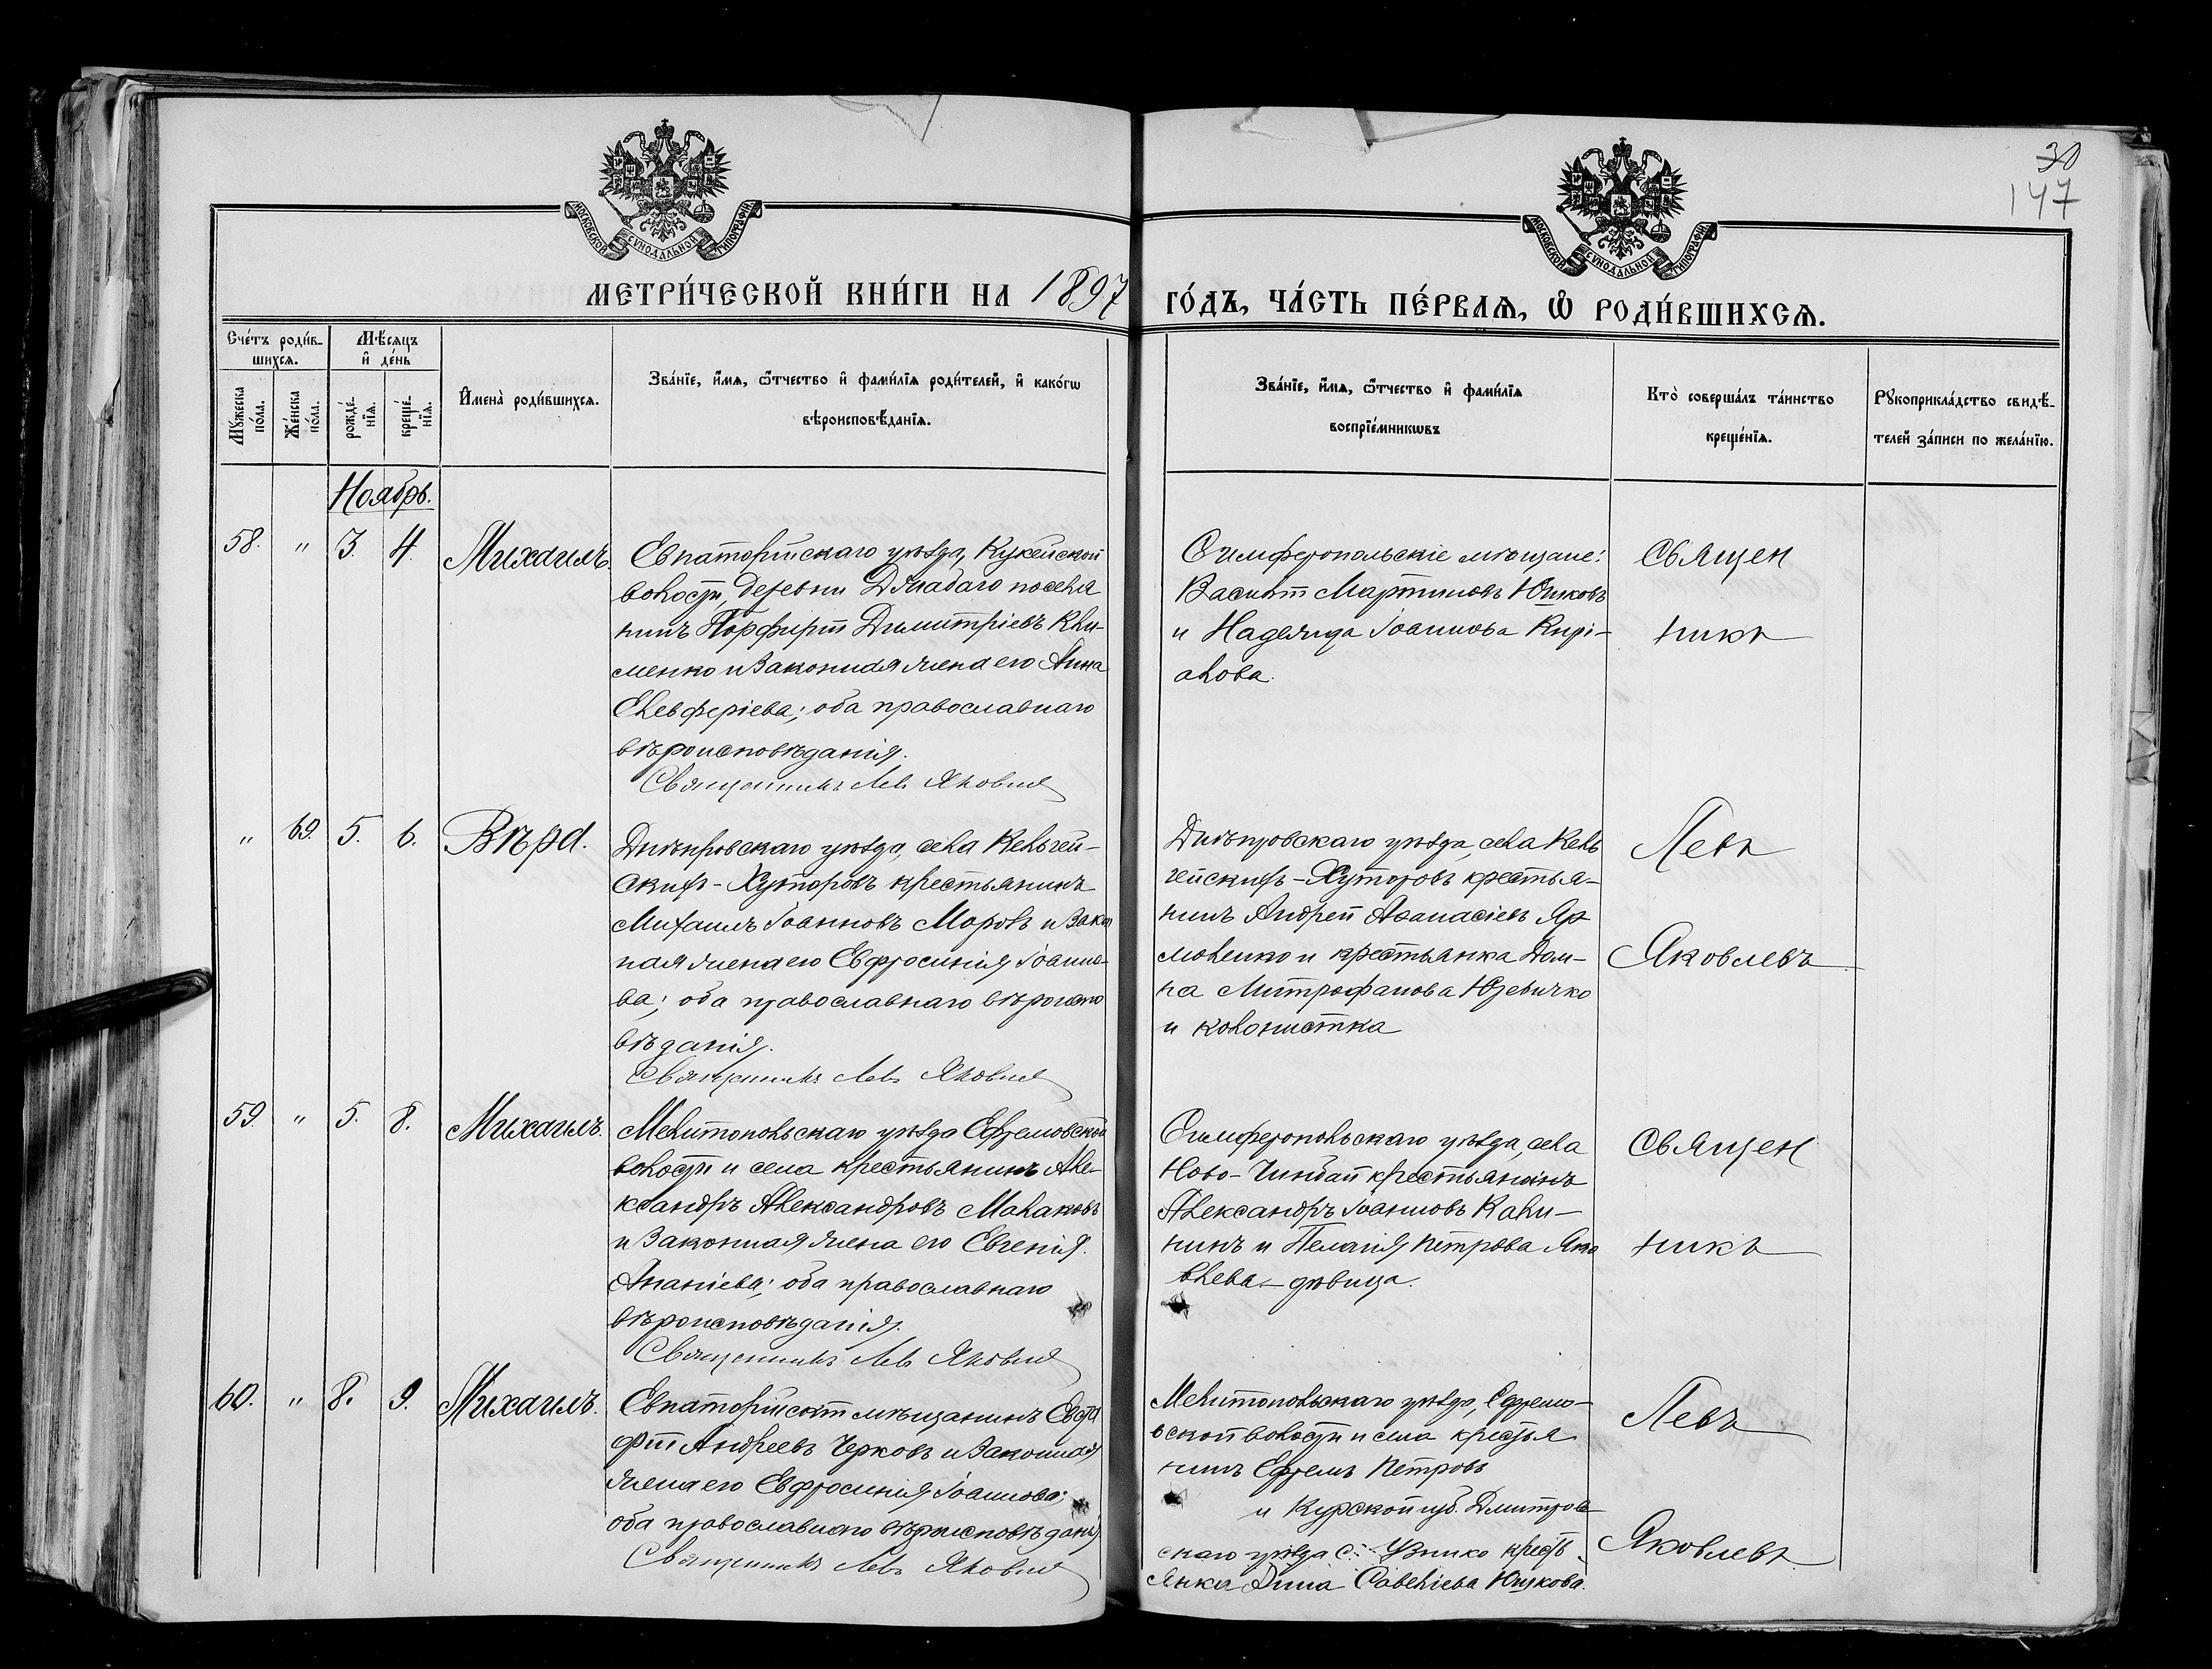 30
147
МОСКОВСКОЙ СѴНОДАЛЬНОЙ ТИПОГРАФІИ
МОСКОВСКОЙ СѴНОДАЛЬНОЙ ТИПОГРАФІИ
МЕТРИ́ЧЕСКОЙ КНИ́ГИ НА 1897 ГО́ДЪ, ЧА́СТЬ ПЕ́РВАѦ, Ѽ РОДИ́ВШИХСѦ.
Сче́тъ роди́в-
шихсѧ.
Мѣ́сѧцъ
и҆ де́нь
Мꙋ́жеска
по́ла.
Же́нска
по́ла.
рожде́-
нїѧ.
креще́-
нїѧ.
И҆мена̀ роди́вшихсѧ.
Зва́нїе, и҆́мѧ, ѻ҆́тчество и҆ фами́лїѧ роди́телей, и҆ како́гѡ
вѣроисповѣ́данїѧ.
Зва́нїе, и҆́мѧ, ѻ҆́тчество и҆ фами́лїѧ
воспрїе́мникѡвъ
Кто̀ соверша́лъ та́инство
креще́нїѧ.
Рꙋкоприкла́дство свидѣ́-
телей за́писи по жела́нїю.
Ноябрь.
58. " 3. 4. Михаилъ.
Евпаторійскаго уѣзда, Кукейской
волости, деревни поселя
нинъ Порфирій Димитріевъ Кли-
менко и законная жена его Анна
Елевферіева; оба православнаго
вѣроисповѣданія.
Священникъ Левъ Яковлевъ
Симферопольскіе мѣщане:
Василій Мартиновъ Юшковъ
и Надежда Іоаннова Кирі-
акова.
Священ
никъ
" 69. 5. 6. Вѣра.
Днѣпровскаго уѣзда, села Кельгей-
скихъ-Хуторовъ крестьянинъ
Михаилъ Іоанновъ Моровъ и закон
ная жена его Евфросинія Іоанно-
ва; оба православнаго вѣроиспо
вѣданія.
Священникъ Левъ Яковлевъ
Днѣпровскаго уѣзда, села Кель
гейскихъ-Хуторовъ крестья-
нинъ Андрей Аѳанасіевъ Яр
моленко и крестьянка Дом-
на Митрофанова
и колонистка
Левъ
Яковлевъ
59. " 5. 8. Михаилъ.
Мелитопольскаго уѣзда Ефремовской
волости и села крестьянинъ Але-
ксандръ Александровъ Малаковъ
и законная жена его Евгенія
Ананіева; оба православнаго
вѣроисповѣданія.
Священникъ Левъ Яковлевъ
Симферопольскаго уѣзда, села
Ново- крестьянинъ
Александръ Іоанновъ Кали-
нинъ и Пелагія Петрова Яко
влева - дѣвица.
Священ
никъ
60. " 8. 9. Михаилъ.
Евпаторійскій мѣщанинъ Евста
фій Андреевъ Черковъ и законная
жена его Евфросинія Іоаннова;
оба православнаго вѣроисповѣданія
Священникъ Левъ Яковлевъ
Мелитопольскаго уѣзда, Ефремо-
вской волости и села крестья
нинъ Ефремъ Петровъ
и Курской губ. Дмитров
скаго уѣзда с. кресть
янка Анна Савельева Юшкова.
Левъ
Яковлевъ